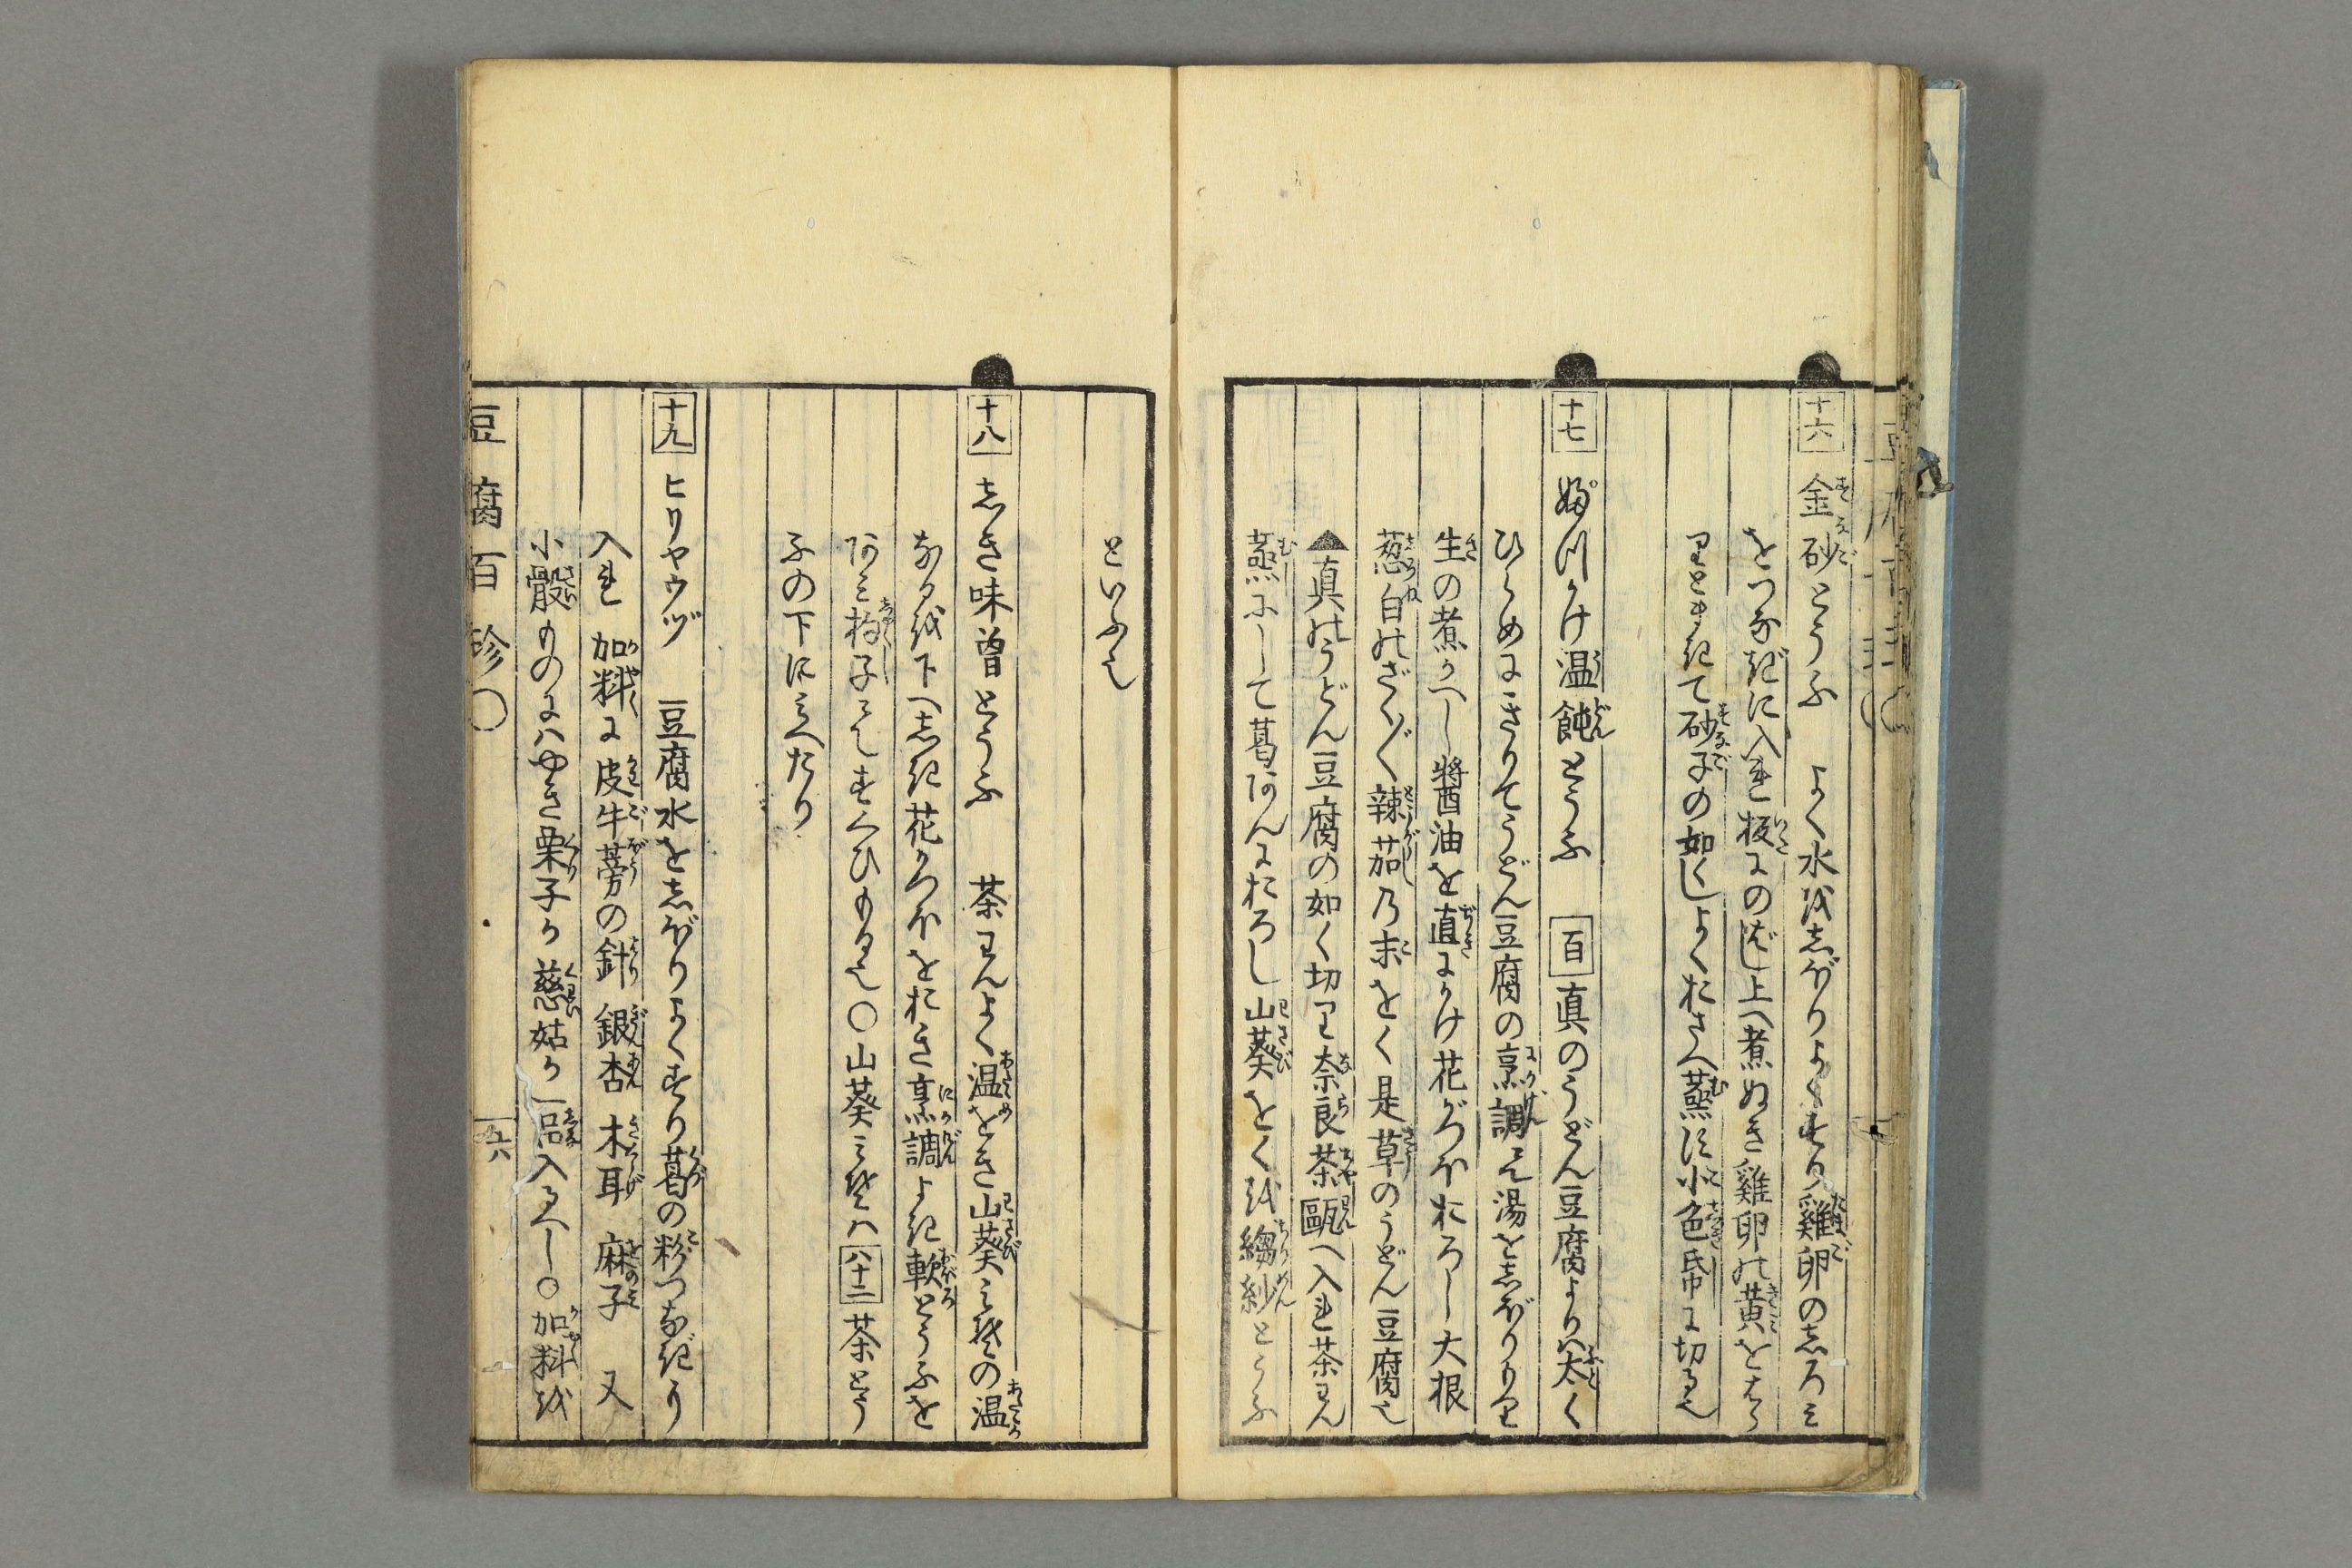 十六 金砂とうふ よく水をしぼりよくすり雞卵のしろミ
をつなぎに入れ板にのばし上へ煮ぬき雞卵の黄をはら
りとをきて砂子の如くしよくおさへ蒸に小色帋に切る也
十七 ぶつかけ温飩とうふ 百 真のうどん豆腐よりハ太く
ひらめにきりてうどん豆腐の烹調して湯をしぼりもり
生の煮かへし醤油を直にかけ花がつほおろし大根
葱白のざく〳〵辣茄乃末をく是草のうどん豆腐也
▲真のうどん豆腐の如く切り奈良茶甌へ入れ茶わん
蒸にして葛あんにおろし山葵をくを縐紗とうふ
といふ也
十八 しき味曽とうふ 茶わんよく温をき山葵ミその温
なるを下へしき花かつほをおき烹調よき軟とうふを
あミ杓子にてすくひもる也○山葵ミそハ 八十二 茶とう
ふの下にミへたり
十九 ヒリヤウヅ 豆腐水をしぼりよくすり葛の粉つなぎに
入れ 加料に皮牛蒡の針 銀杏 木耳 麻子 又
小骰ものにハやき栗子か慈姑か一品入るべし○加料を
豆腐百珍○
十六